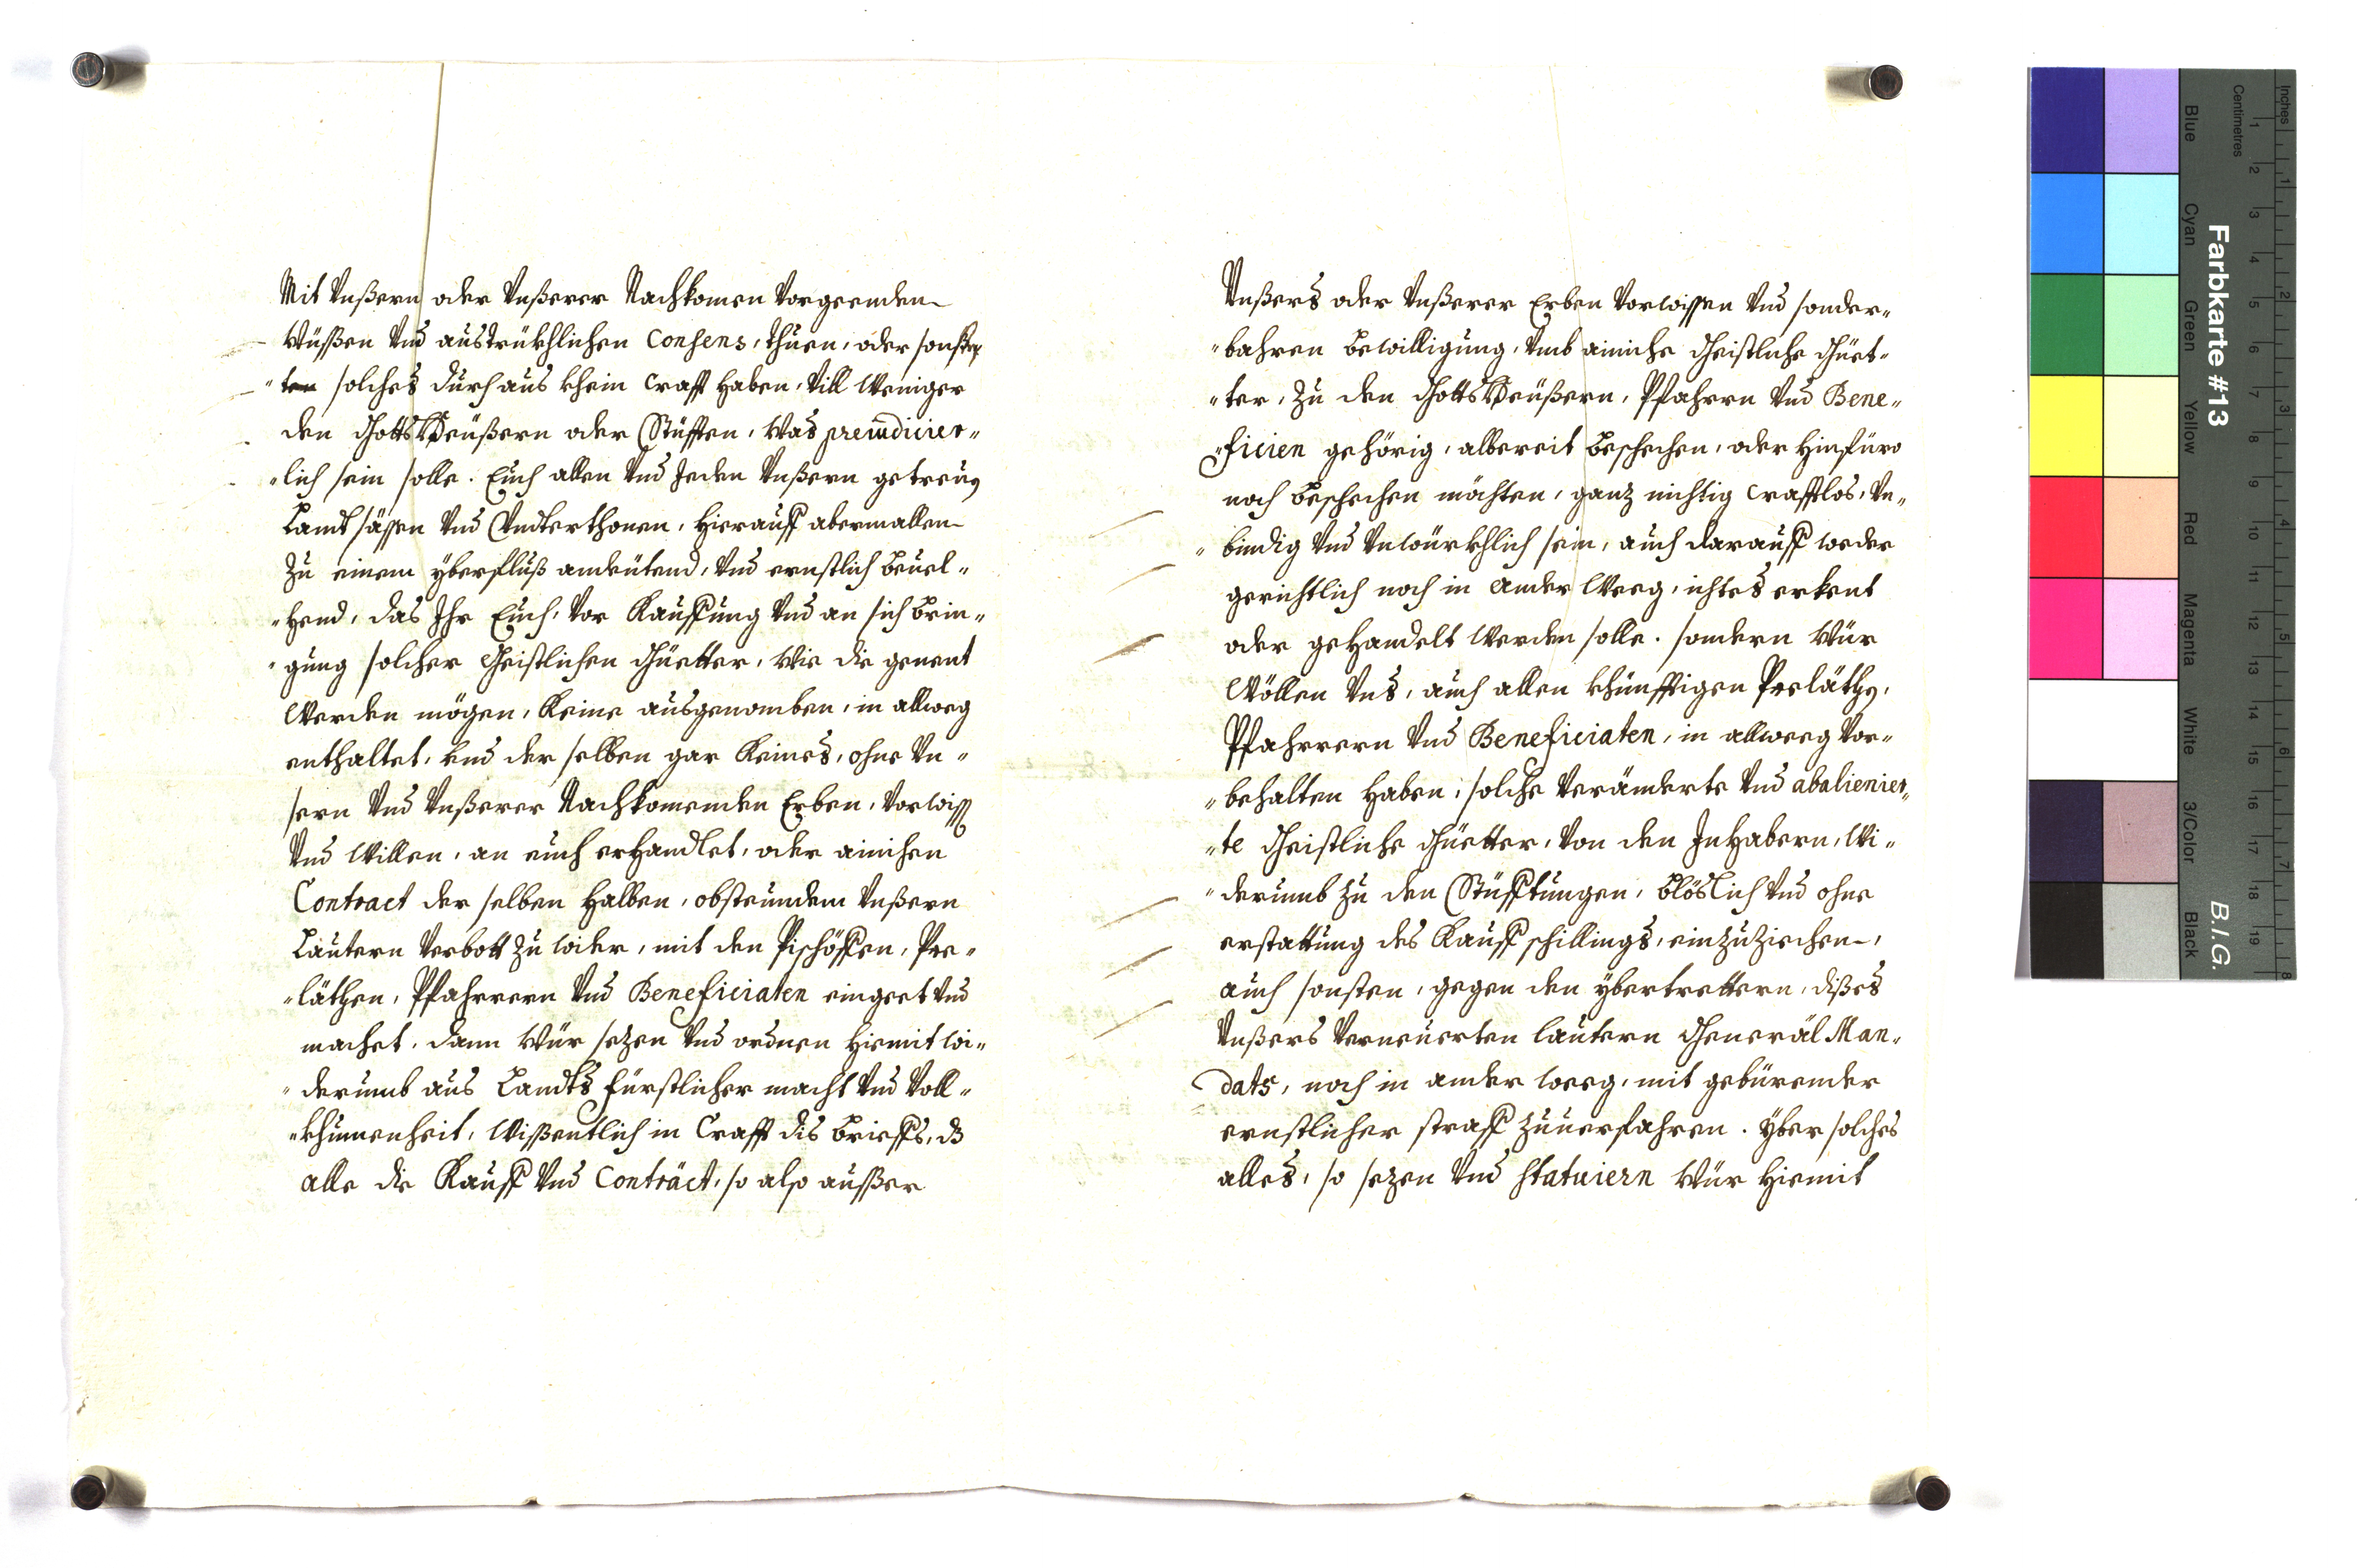 Mit Vnßern oder Vnßerer Nachkomen Vorgeenden
Wüßen Vnd austrükhlichen Consens, thuen, oder sonsten
ten solches durchaus khein Crafft haben, Vill Weniger
den GottsHeüßern oder Stüfften, Was preiudicier„
„lich sein solle. Euch allen Vnd Jeden Vnßern getreuen
Landtsässen Vnd Vndterthonen, hierauff abermallen
Zu einem yberfluß andeütend, Vnd ernstlich beuel„
„hend, das Ihr Euch, Vor Kauffung Vnd an sich brin„
„gung solcher Geistlichen Güetter, Wie die genent
Werden mögen, Keine ausgenomben, in allweg
enthaltet, vnd der selben gar Keines, ohne Vn„
sern Vnd Vnßerer Nachkomenden Erben, Vorwissen
Vnd Willen, an euch erhandlet, oder ainichen
Contract der selben halben, obsteundem Vnßern
Lautern Verbott zu wider, mit den Pischöffen, Pre„
„läthen, Pfahrrern Vnd Beneficiaten eingeet Vnd
machet. dann Wür sezen Vnd ordnen hiemit wi„
„derumb aus Landts fürstlicher macht Vnd Voll„
„khumenheit, Wißentlich in Crafft dis brieffs, dß
alle die Kauff Vnd Conträct, so also außer
Vnßers oder Vnßerer Erben Vorwissen Vnd sonder„
„bahren bewilligung, Vmb ainiche Geistliche Güet„
„ter, Zu den GottsHeüßern, Pfahrrn Vnd Bene„
„ficien gehörig, albereit beschechen, oder hinfüro
noch beschechen möchten, ganz nichtig Crafftlos, Vn„
„bindig Vnd Vnwürkhlich sein, auch darauff weder
gerichtlich noch in ander Weeg, ichtes erkent
oder gehandelt Werden solle. sondern Wür
Wöllen Vns, auch allen khünfftigen Preläthen,
Pfahrrern Vnd Beneficiaten, in allweeg Vor„
„behalten haben, solche Veränderte Vnd abalienier„
„te Geistliche Güetter, Von den Inhabern, Wi„
„derumb zu den Stüfftungen, blöslich Vnd ohne
erstattung des Kauff schillings, einzuziechen,
auch sonsten, gegen den ybertrettern, dißes
Vnßers Verneuerten lautern Generäl Man„
dats, noch in ander weeg, mit gebürender
ernstlicher straff zuuerfahren. Yber solches
alles, so sezen Vnd statuiern Wür hiemit
Farbkarte #13
B.I.G.
Inches
Centimetres
Blue
Cyan
Green
Yellow
Red
Magenta
White
3/Color
Black
1 2 3 4 5 6 7 8 9 10 11 12 13 14 15 16 17 18 19
1 2 3 4 5 6 7 8